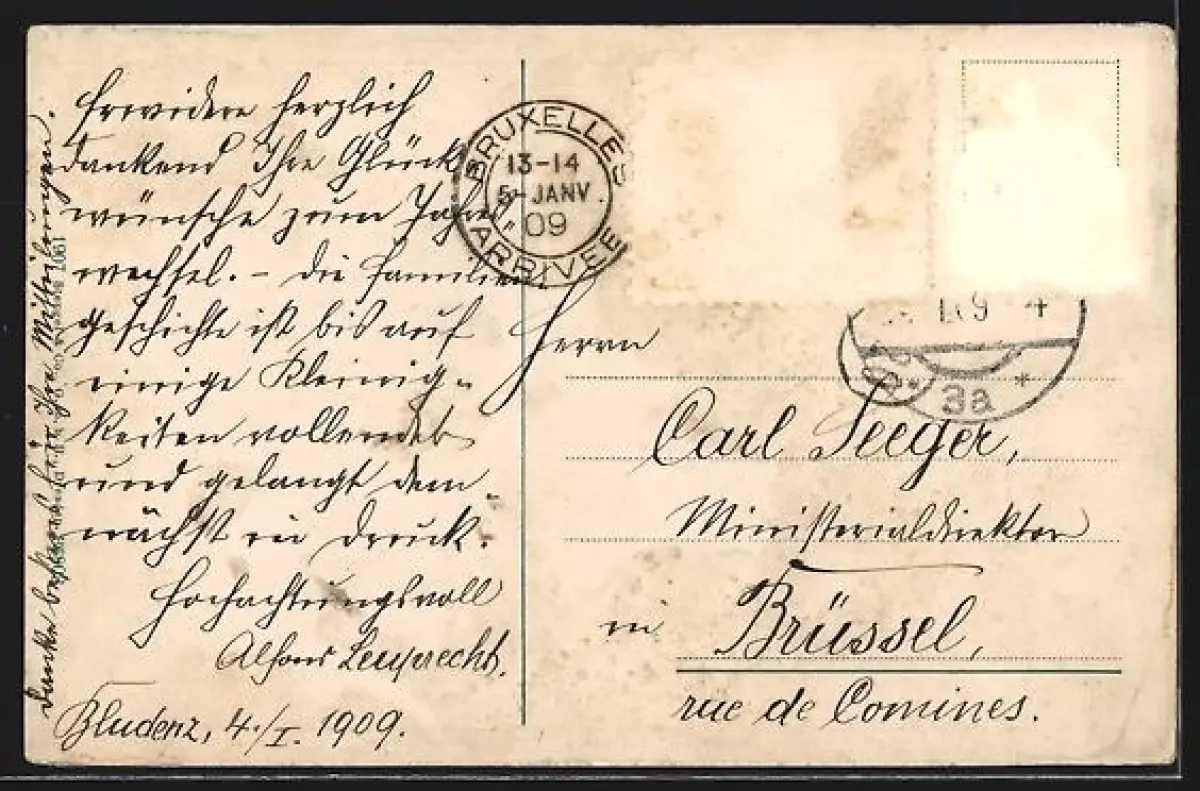 Erwidere herzlich
dankend Ihre Glück
wünsche zum Jahres
wechsel. – Die Familien
geschichte ist bis auf
einige Kleinig-
keiten vollendet
und gelangt dem-
nächst in Druck.
Hochachtungsvoll
Alfons Leuprecht.
Bludenz, 4./I. 1909.
Danke bestens für Ihre Mitteilungen.
1907
BRUXELLES
13-14
5-JANV
09
ARRIVEE
9 4
3a *
Herrn
Carl Seeger,
Ministerialdirektor
in Brüssel,
rue de Comines.